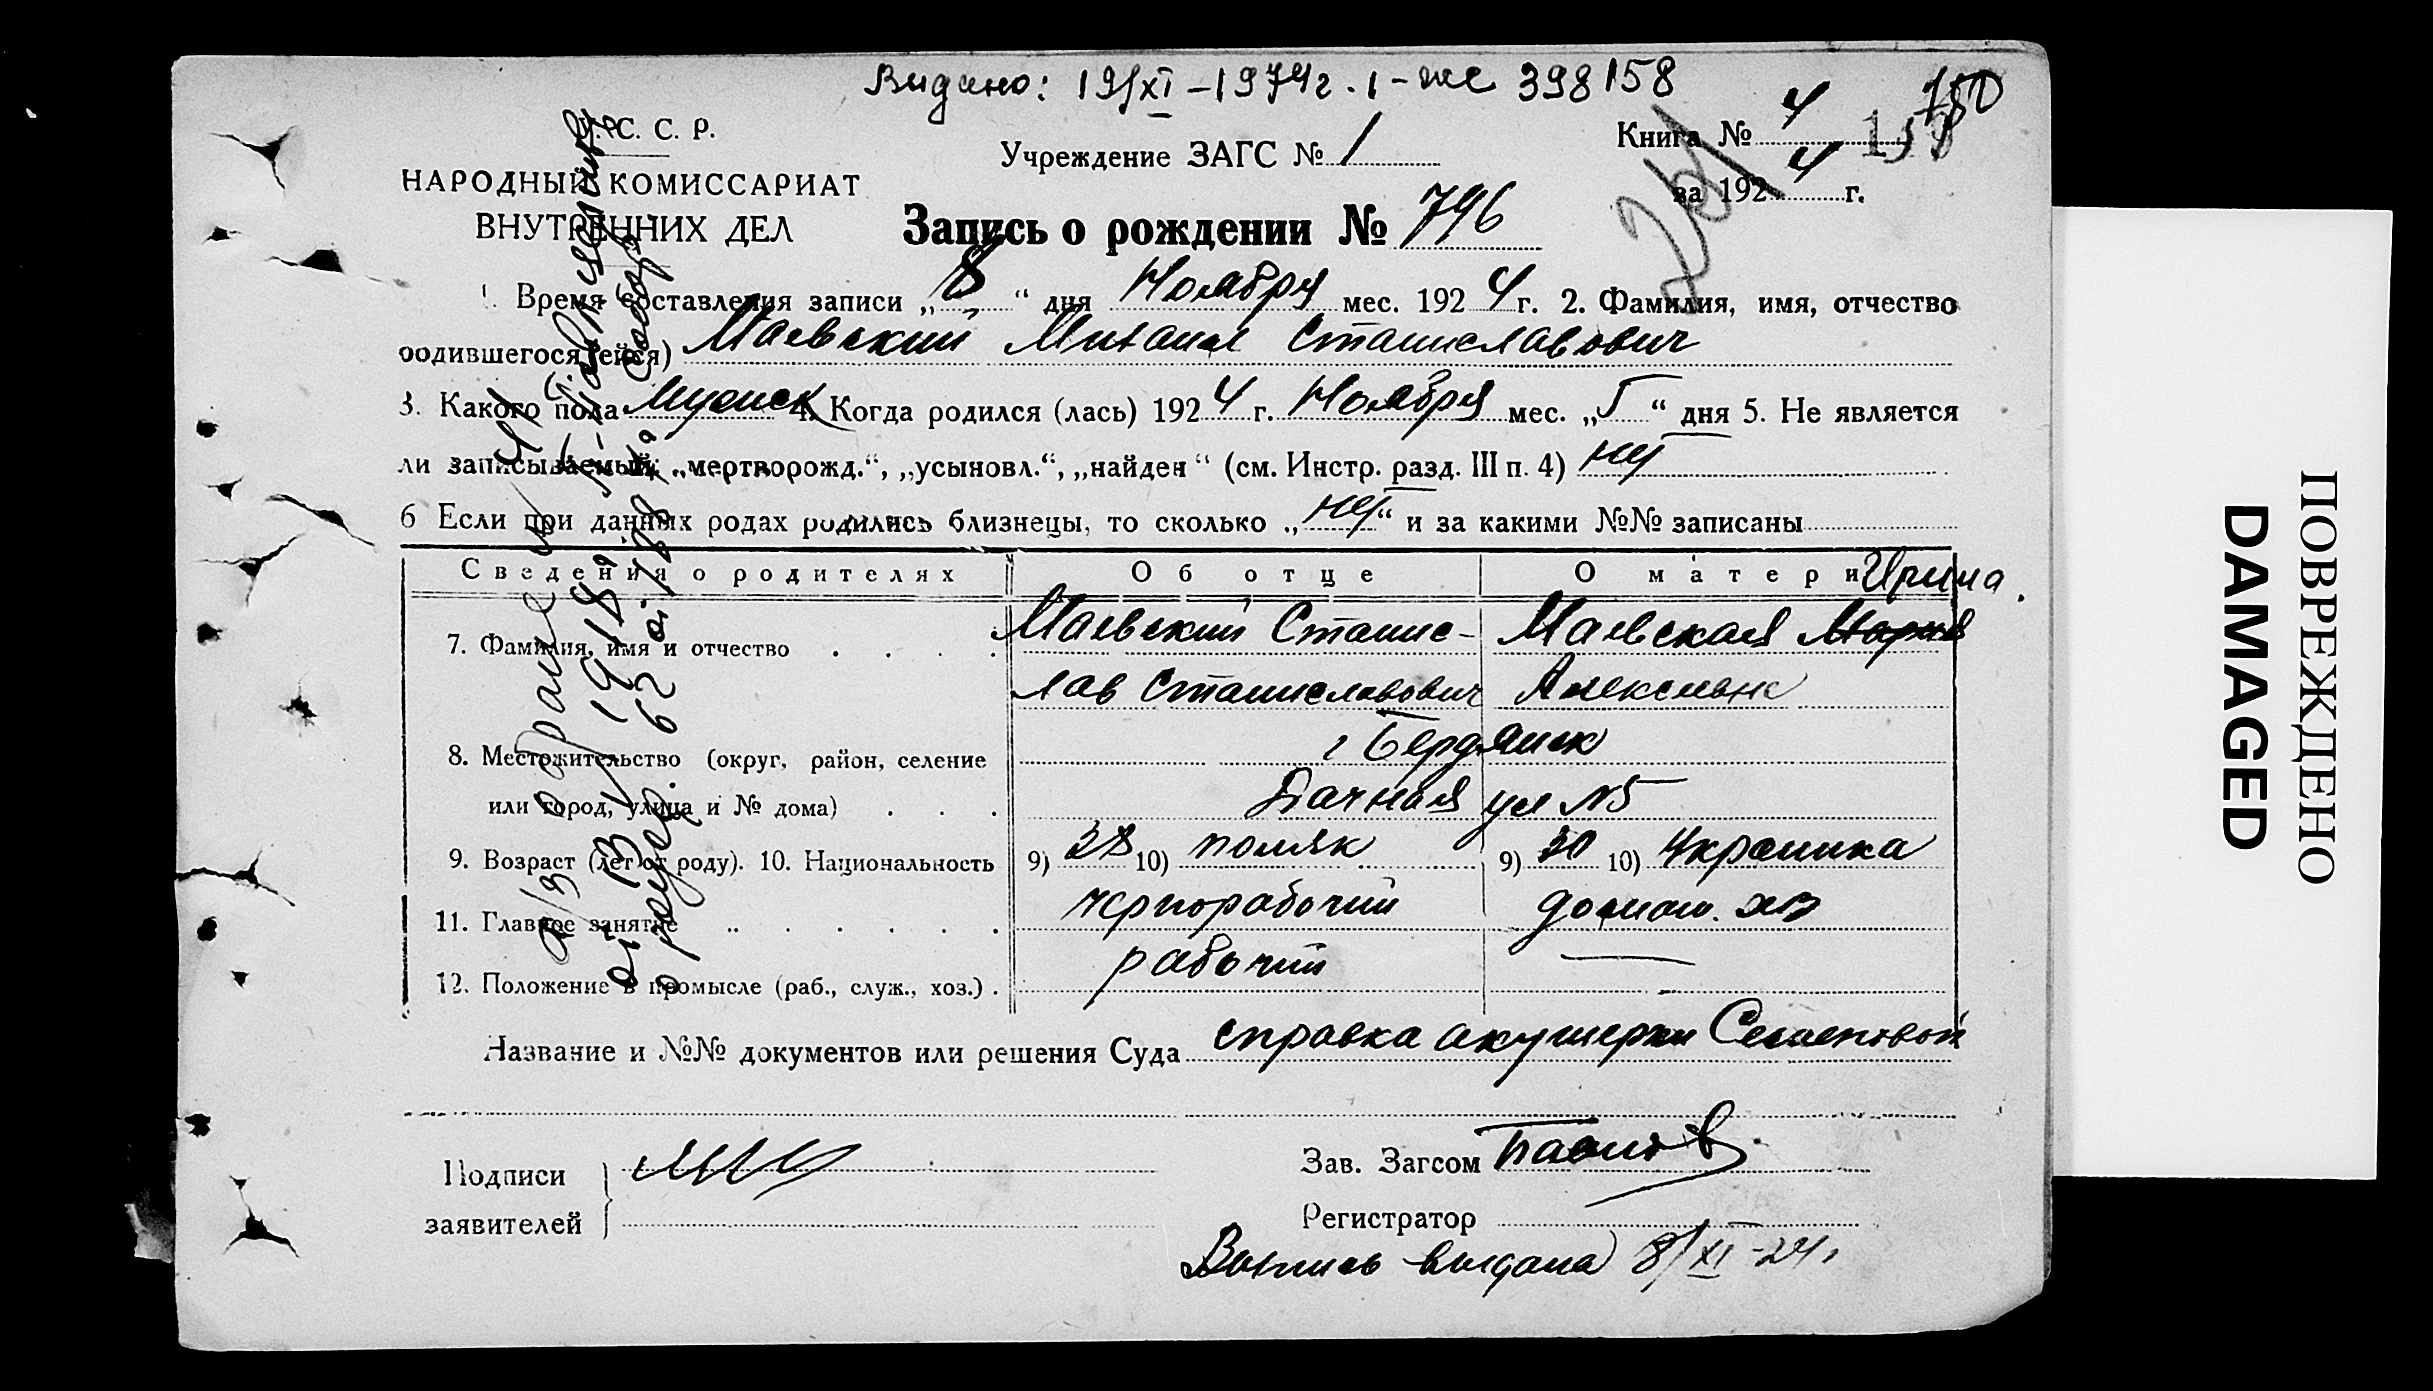 Видано: 19/XI-1974г. I-же 398158
У. С. С. Р.
НАРОДНЫЙ КОМИССАРИАТ
ВНУТРЕННИХ ДЕЛ
Учреждение ЗАГС № 1
Книга № 4
150
за 1924 г.
Запись о рождении № 796
1. Время составления записи „8“ дня Ноября мес. 1924 г. 2. Фамилия, имя, отчество
родившегося (ейся) Маевский Михаил Станиславович
3. Какого пола мужск 4. Когда родился (лась) 1924 г. Ноября мес. „5“ дня 5. Не является
ли записываемый: „мертворожд.“, „усыновл.“, „найден“ (см. Инстр. разд. III п. 4) нет
6 Если при данных родах родились близнецы, то сколько „нет“ и за какими №№ записаны
Сведения о родителях Об отце О матери Ирина.
7. Фамилия, имя и отчество Маевский Станис- Маевская Мария
лав Станиславович Алексеевна
8. Местожительство (округ, район, селение г Бердянск
или город, улица и № дома) Дачная ул №5
9. Возраст (лет от роду). 10. Национальность 9) 28 10) поляк 9) 30 10) Украинка
11. Главное занятие чернорабочий домаш. хоз
12. Положение в промысле (раб., служ., хоз.) рабочий —
Название и №№ документов или решения Суда справка акушерки Семеновой
Подписи
заявителей
Зав. Загсом Павлов
Регистратор
Выпись выдана 8/XI-24г.
ПОВРЕЖДЕНО
DAMAGED